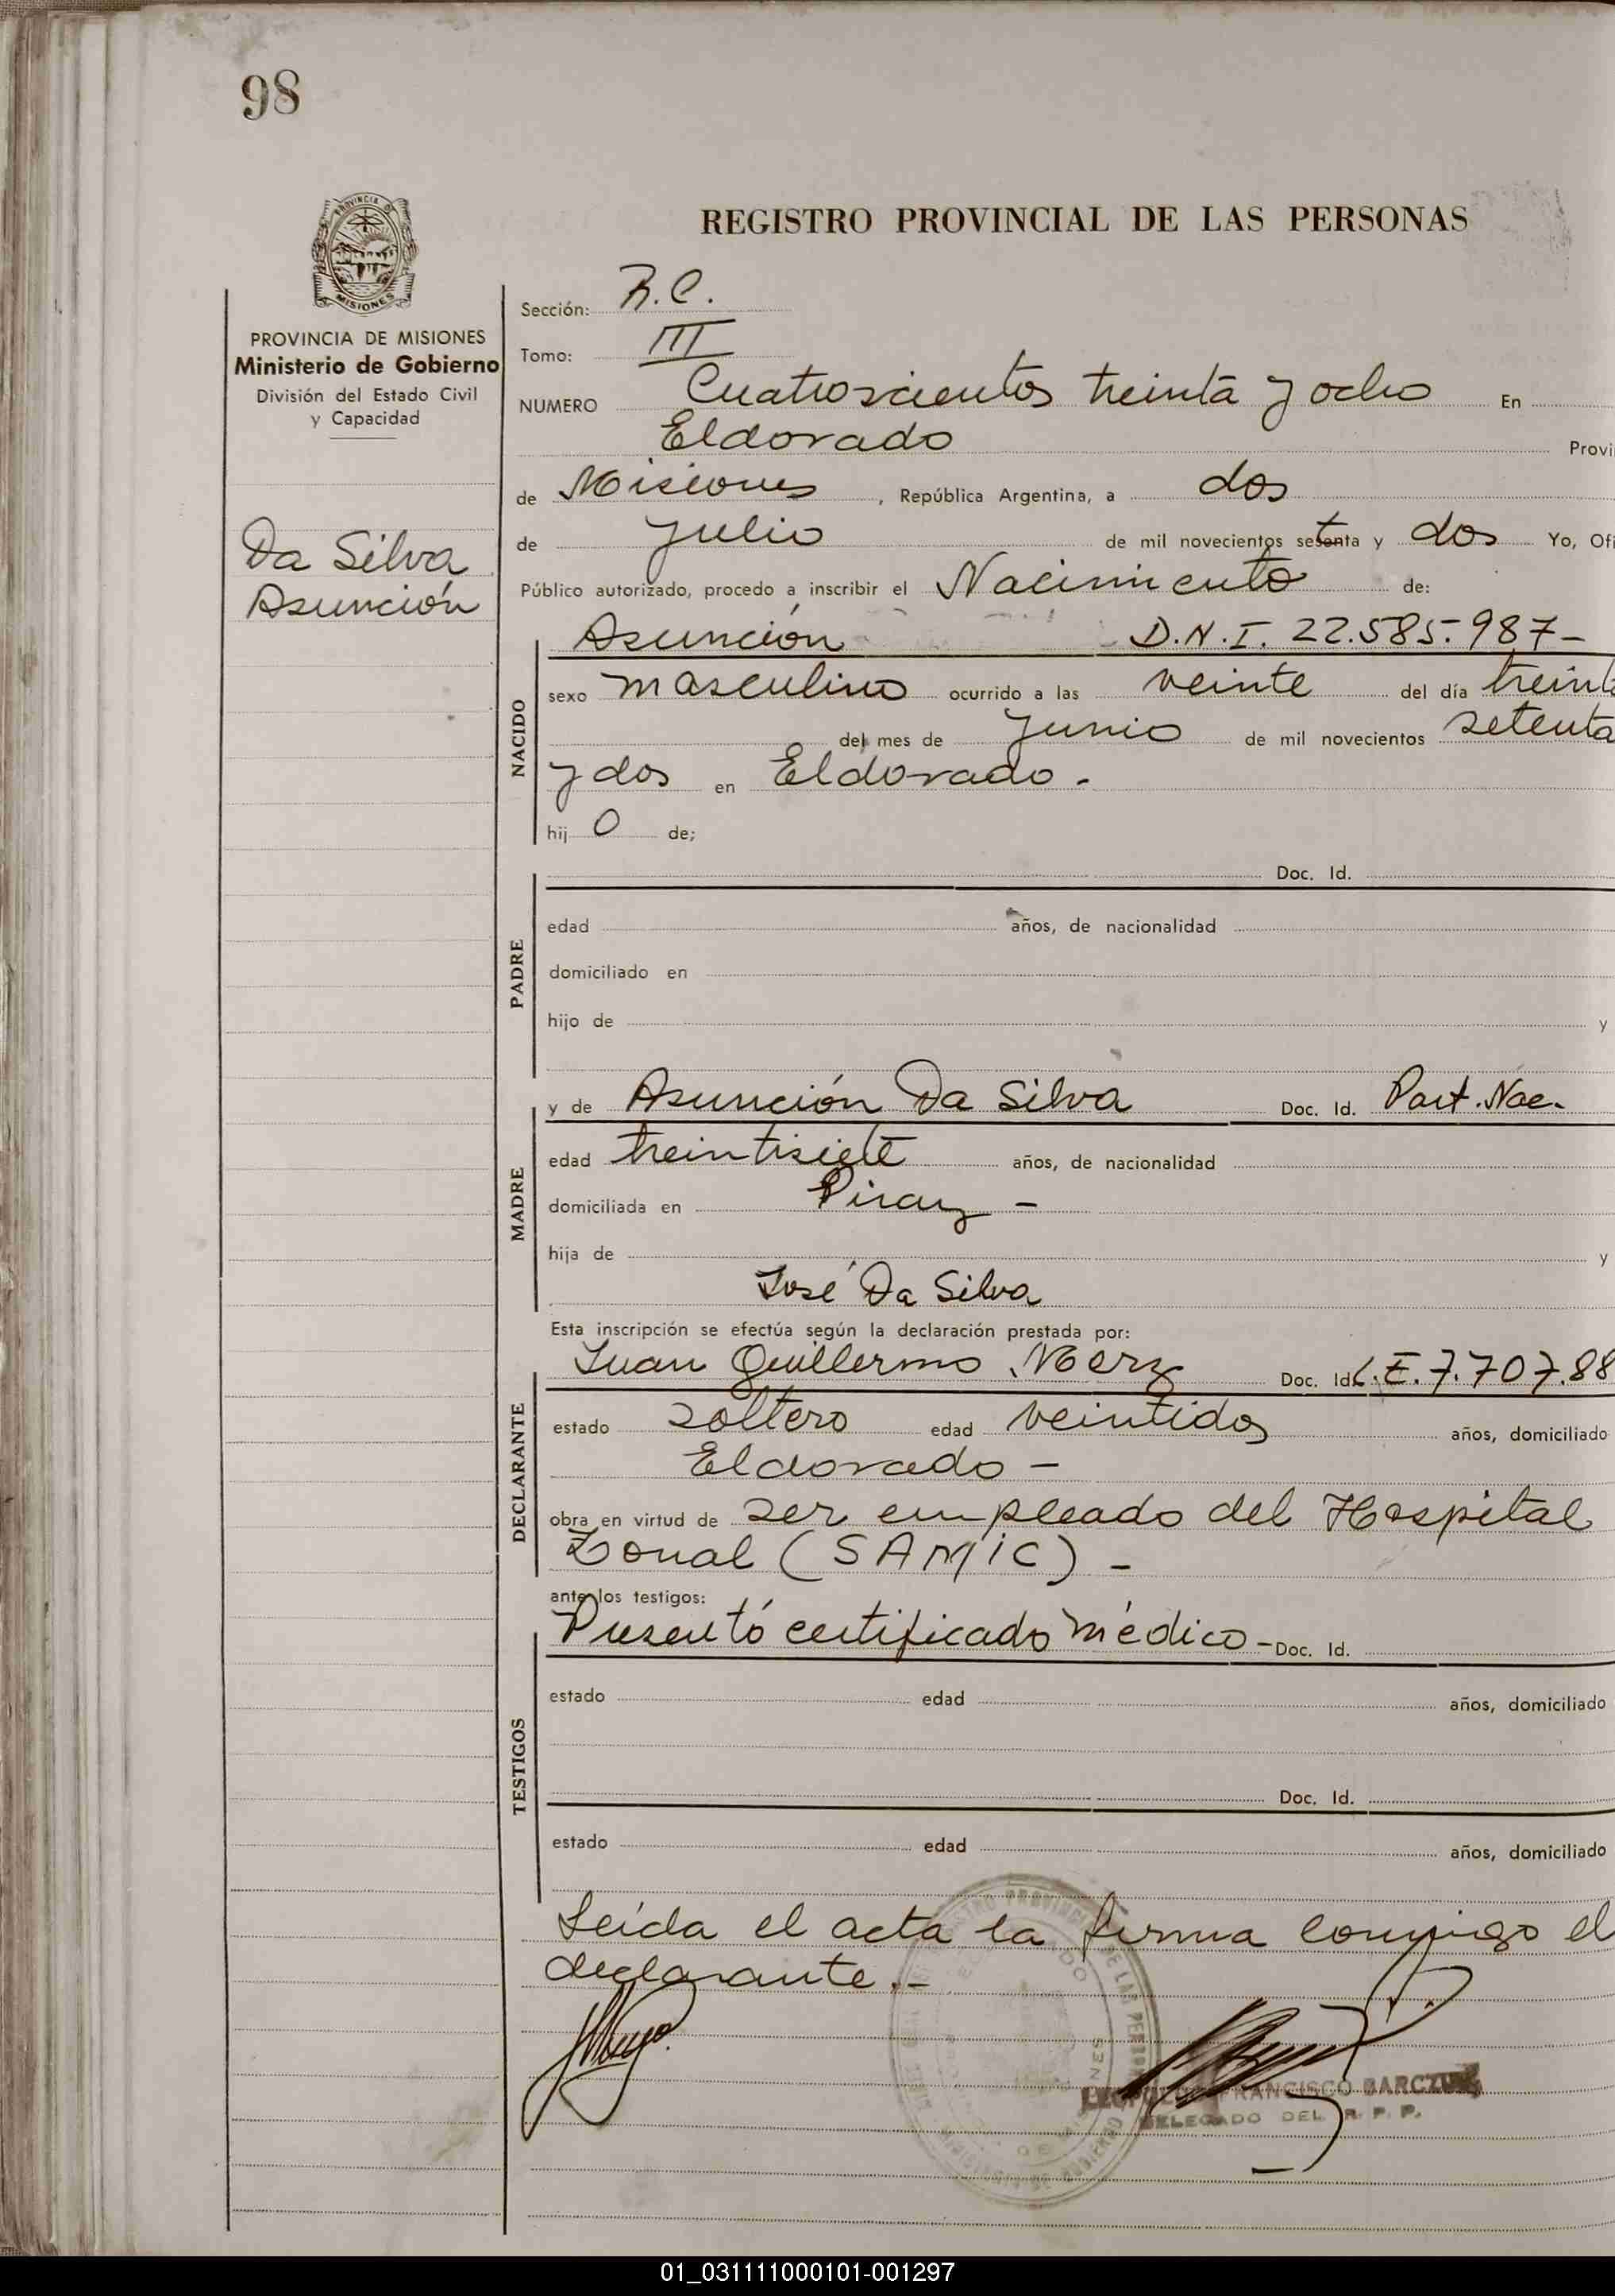 98
PROVINCIA DE MISIONES
Ministerio de Gobierno
División del Estado Civil
y Capacidad
Da Silva
Asunción
REGISTRO PROVINCIAL DE LAS PERSONAS
Sección: R.C.
Tomo: III
NUMERO Cuatroscientos treinta y ocho En
Eldorado Provi
de Misiones, República Argentina, a dos
de Julio de mil novecientos setenta y dos Yo, Ofi
Público autorizado, procedo a inscribir el Nacimiento de:
Asunción D.N.I. 22.585.987-
NACIDO
sexo masculino ocurrido a las veinte del día treinta
del mes de Junio de mil novecientos setenta
y dos en Eldorado.-
hij o de;
Doc. Id.
PADRE
edad años, de nacionalidad
domiciliado en
hijo de y
y de Asunción Da Silva Doc. Id. Part. Nac.
MADRE
edad treintisiete años, de nacionalidad
domiciliada en Piray -
hija de y
José Da Silva
Esta inscripción se efectúa según la declaración prestada por:
Juan Guillermo Doc. Id. L.E. 7.707.88
DECLARANTE
estado soltero edad veintidos años, domiciliado
Eldorado -
obra en virtud de ser empleado del Hospital
Zonal (SAMIC) -
ante los testigos:
Presentó certificado médico - Doc. Id.
TESTIGOS
estado edad años, domiciliado
Doc. Id.
estado edad años, domiciliado
Leída el acta la firma conmigo el
declarante.-
FRANCISCO
DELEGADO DEL R. P. P.
01_031111000101-001297